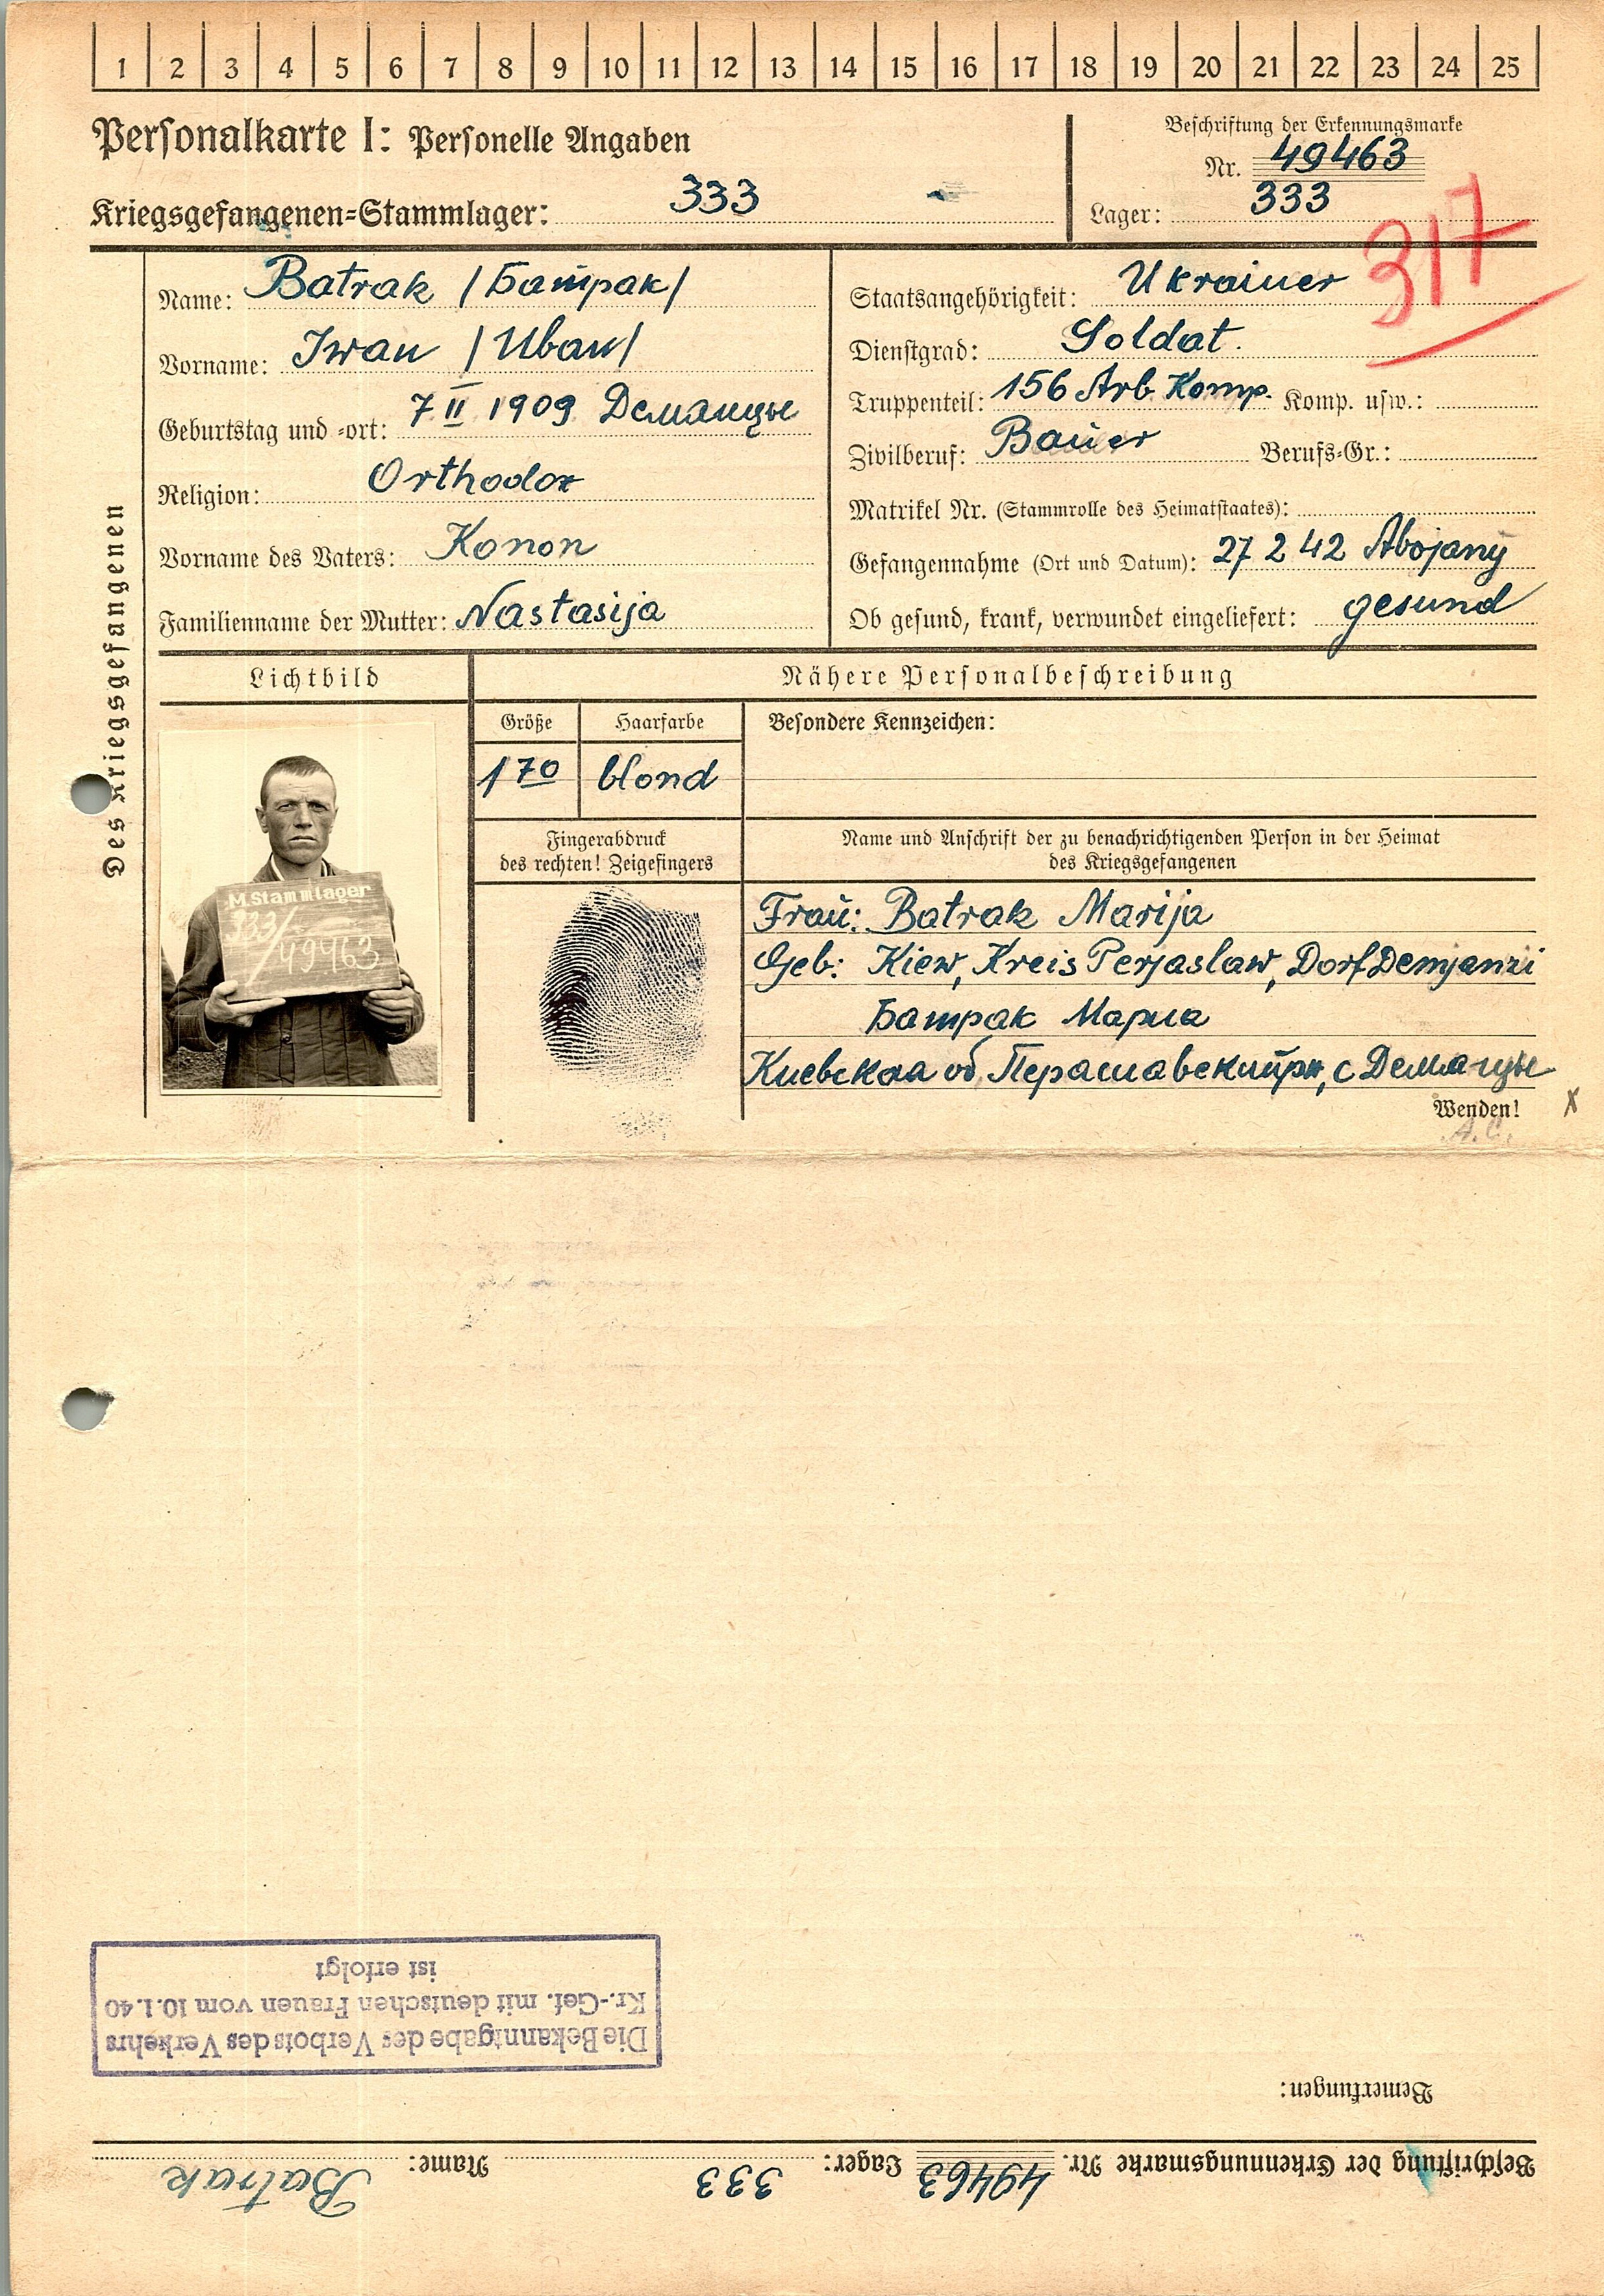 1 2 3 4 5 6 7 8 9 10 11 12 13 14 15 16 17 18 19 20 21 22 23 24 25
Personalkarte I: Personelle Angaben
Beschriftung der Erkennungsmarke
Nr. 49463
Kriegsgefangenen=Stammlager: 333
Lager: 333
317
Des Kriegsgefangenen
Name: Batrak /Батрак/
Vorname: Iwan /Иван/
Geburtstag und =ort: 7 II 1909 Демянцы
Religion: Orthodox
Vorname des Vaters: Konon
Familienname der Mutter: Nastasija
Staatsangehörigkeit: Ukrainer
Dienstgrad: Soldat.
Truppenteil: 156 Arb. Komp. Komp. usw.:
Zivilberuf: Bauer Berufs=Gr.:
Matrikel Nr. (Stammrolle des Heimatstaates):
Gefangennahme (Ort und Datum): 27 2 42 Abojany
Ob gesund, krank, verwundet eingeliefert: gesund
Lichtbild
Nähere Personalbeschreibung
Größe Haarfarbe Besondere Kennzeichen:
170 blond
M.Stammlager
333/
49463
Fingerabdruck
des rechten! Zeigefingers
Name und Anschrift der zu benachrichtigenden Person in der Heimat
des Kriegsgefangenen
Frau: Batrak Marija
Geb: Kiew, Kreis Perjaslaw, Dorf Demjanzi
Батрак Мария
Киевская об, с Демянцы
Wenden!
A.C.
X
Beschriftung der Erkennungsmarke Nr. 49463 Lager: 333 Name: Batrak
Bemerkungen:
Die Bekanntgabe des Verbots des Verkehrs
Kr.-Gef. mit deutschen Frauen vom 10.1.40
ist erfolgt